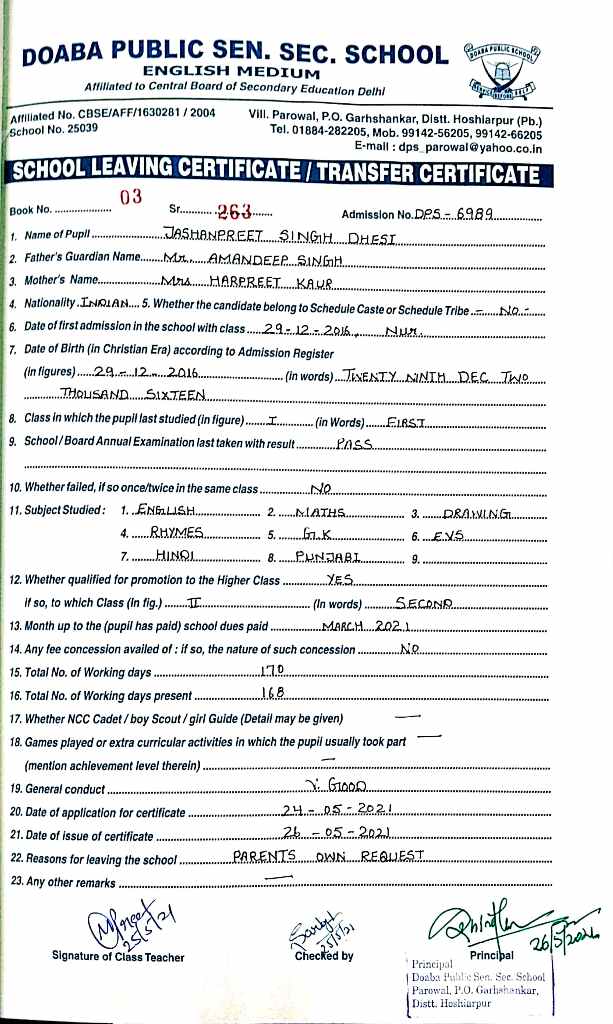 DOABA PUBLIC SEN. SEC. SCHOOL
ENGLISH MEDIUM
Affiliated to Central Board of Secondary Education Delhi
DOABA PUBLIC SCHOOL
SERVICE BEFORE SELF
Affiliated No. CBSE/AFF/1630281 / 2004
School No. 25039
Vill. Parowal, P.O. Garhshankar, Distt. Hoshiarpur (Pb.)
Tel. 01884-282205, Mob. 99142-56205, 99142-66205
E-mail : dps_parowal@yahoo.co.in
SCHOOL LEAVING CERTIFICATE / TRANSFER CERTIFICATE
Book No. 03 Sr. 263 Admission No. DPS - 6989
1. Name of Pupil JASHANPREET SINGH DHESI
2. Father's Guardian Name Mr. AMANDEEP SINGH
3. Mother's Name Mrs HARPREET KAUR
4. Nationality INDIAN 5. Whether the candidate belong to Schedule Caste or Schedule Tribe - NO -
6. Date of first admission in the school with class 29-12-2016, Nur.
7. Date of Birth (in Christian Era) according to Admission Register
(in figures) 29-12-2016 (in words) TWENTY NINTH DEC TWO
THOUSAND SIXTEEN
8. Class in which the pupil last studied (in figure) I (in Words) FIRST
9. School / Board Annual Examination last taken with result PASS
10. Whether failed, if so once/twice in the same class NO
11. Subject Studied : 1. ENGLISH 2. MATHS 3. DRAWING
4. RHYMES 5. G.K 6. EVS
7. HINDI 8. PUNJABI 9.
12. Whether qualified for promotion to the Higher Class YES
if so, to which Class (in fig.) II (In words) SECOND
13. Month up to the (pupil has paid) school dues paid MARCH 2021
14. Any fee concession availed of : if so, the nature of such concession NO
15. Total No. of Working days 170
16. Total No. of Working days present 168
17. Whether NCC Cadet / boy Scout / girl Guide (Detail may be given) —
18. Games played or extra curricular activities in which the pupil usually took part —
(mention achievement level therein) —
19. General conduct V. GOOD
20. Date of application for certificate 24-05-2021
21. Date of issue of certificate 26-05-2021
22. Reasons for leaving the school PARENTS OWN REQUEST
23. Any other remarks —
25/5/21 25/5/21 26/5/2021
Signature of Class Teacher Checked by Principal
Principal
Doaba Public Sen. Sec. School
Parowal, P.O. Garhshankar,
Distt. Hoshiarpur